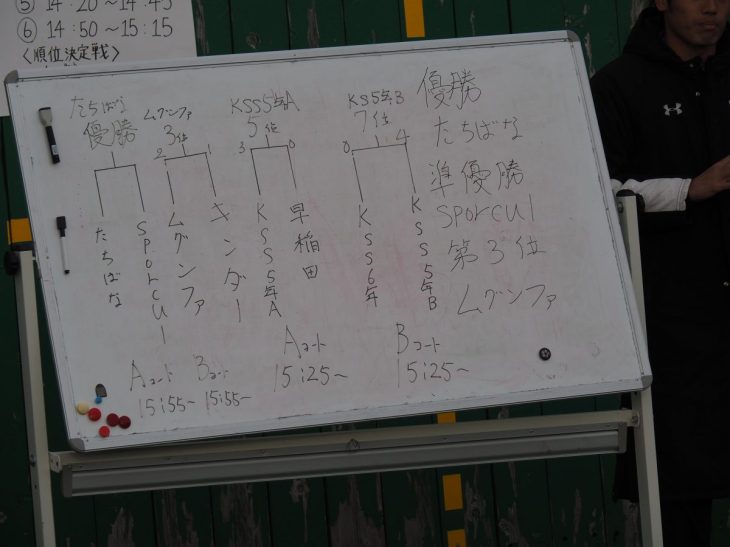 ⑤ 14:20~14:45
⑥ 14:50~15:15
<順位決定戦>
たちばな
優勝
ムグンファ
3位
2 1
KSS5年A
5位
3 0
KS5年B
7位
0 4
たちばな
sporcul
ムグンファ
キンダー
KSS5年A
早稲田
KSS6年
KSS5年B
優勝
たちばな
準優勝
sporcul
第3位
ムグンファ
Aコート
15:55~
Bコート
15:55~
Aコート
15:25~
Bコート
15:25~
UNDER ARMOUR